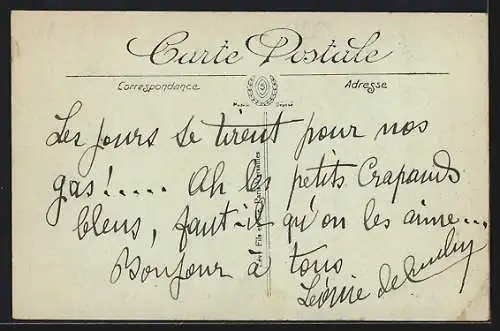 Carte Postale
Correspondance
Adresse
Les jours se tirent pour nos
gas!..... Ah les petits Crapauds
bleus, faut-il qu'on les aime...
Bonjour à tous
Léonie de